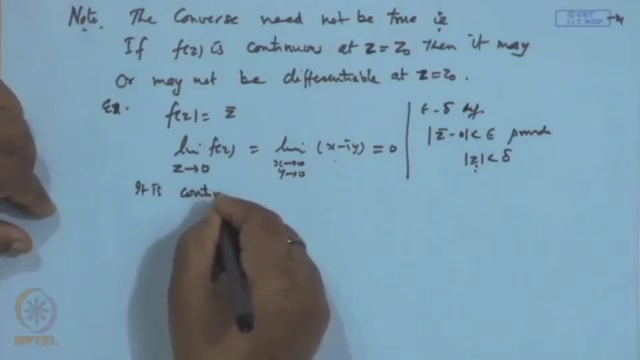 Note. The Converse need not be true ie
If f(z) is continuous at z = z₀ then it may
or may not be differentiable at z = z₀.
Ex. f(z) = z̄
lim z→0 f(z) = lim x→0 y→0 (x-iy) = 0
It is cont
ε-δ def.
|z̄ - 0| < ε provide
|z| < δ
© CET
I.I.T. KGP
NPTEL